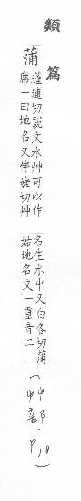 類篇
蒲
蓬逋切說文水艸可以作
席一曰地名又伴姥切艸
名生水中又白各切蒲
姑地名文一重音二
(艸部．P.10)